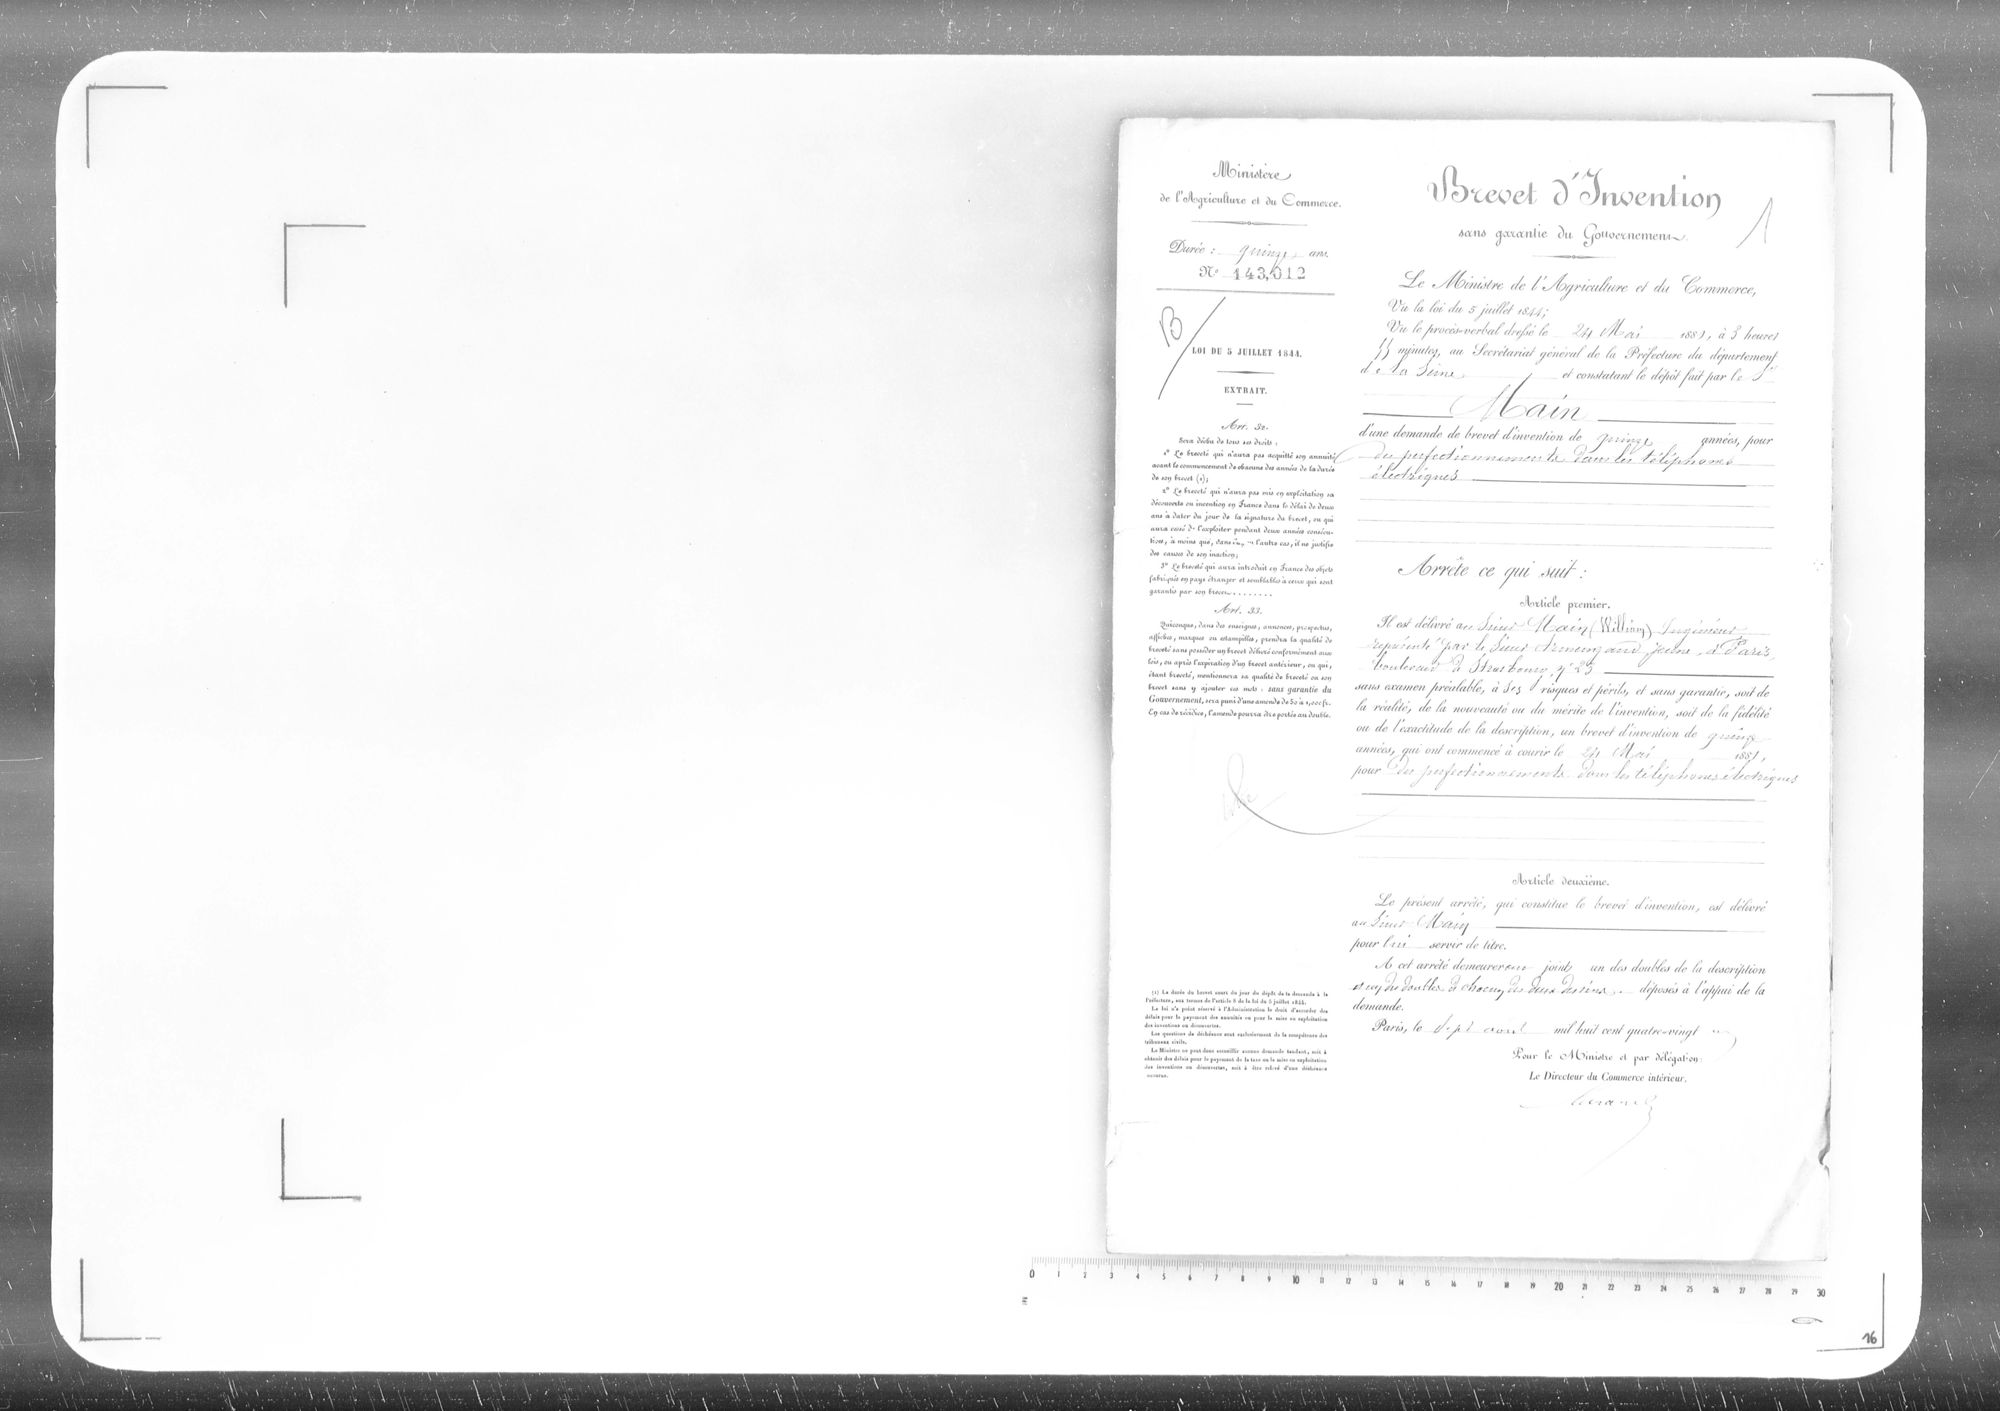 Ministère
de l'Agriculture et du Commerce.
Durée : quinze ans.
N° 143,012
B
LOI DU 5 JUILLET 1844.
EXTRAIT.
Art. 32.
Sera déchu de tous ses droits :
1° Le breveté qui n'aura pas acquitté son annuité
avant le commencement de chacune des années de la durée
de son brevet (1);
2° Le breveté qui n'aura pas mis en exploitation sa
découverte ou invention en France dans le délai de deux
ans à dater du jour de la signature du brevet, ou qui
aura cessé de l'exploiter pendant deux années consécu-
tives, à moins que, dans l'un ou l'autre cas, il ne justifie
des causes de son inaction;
3° Le breveté qui aura introduit en France des objets
fabriqués en pays étranger et semblables à ceux qui sont
garantis par son brevet........
Art. 33.
Quiconque, dans des enseignes, annonces, prospectus,
affiches, marques ou estampilles, prendra la qualité de
breveté sans posséder un brevet délivré conformément aux
lois, ou après l'expiration d'un brevet antérieur, ou qui,
étant breveté, mentionnera sa qualité de breveté ou son
brevet sans y ajouter ces mots : sans garantie du
Gouvernement, sera puni d'une amende de 50 à 1,000 fr.
En cas de récidive, l'amende pourra être portée au double.
(1) La durée du brevet court du jour du dépôt de la demande à la
Préfecture, aux termes de l'article 8 de la loi du 5 juillet 1844.
La loi n'a point réservé à l'Administration le droit d'accorder des
délais pour le payement des annuités ou pour la mise en exploitation
des inventions ou découvertes.
Les questions de déchéance sont exclusivement de la compétence des
tribunaux civils.
Le Ministre ne peut donc accueillir aucune demande tendant, soit à
obtenir des délais pour le payement de la taxe ou la mise en exploitation
des inventions ou découvertes, soit à être relevé d'une déchéance
encourue.
Brevet d'Invention
1
sans garantie du Gouvernement.
Le Ministre de l'Agriculture et du Commerce,
Vu la loi du 5 juillet 1844;
Vu le procès-verbal dressé le 24 Mai 1881, à 3 heures
minutes, au Secrétariat général de la Préfecture du département
de la Seine et constatant le dépôt fait par le Sr
Main
d'une demande de brevet d'invention de quinze années, pour
des perfectionnements dans les téléphones
électriques
Arrête ce qui suit :
Article premier.
Il est délivré au Sieur Main (William) Ingénieur
représenté par le Sieur Armengaud jeune, à Paris,
boulevard de Strasbourg, n° 23
sans examen préalable, à ses risques et périls, et sans garantie, soit de
la réalité, de la nouveauté ou du mérite de l'invention, soit de la fidélité
ou de l'exactitude de la description, un brevet d'invention de quinze
années, qui ont commencé à courir le 24 Mai 1881,
pour des perfectionnements dans les téléphones électriques
Article deuxième.
Le présent arrêté, qui constitue le brevet d'invention, est délivré
au Sieur Main
pour lui servir de titre.
A cet arrêté demeureront joints un des doubles de la description
et un des doubles de chacun des deux dessins déposés à l'appui de la
demande.
Paris, le sept août mil huit cent quatre-vingt un
Pour le Ministre et par délégation:
Le Directeur du Commerce intérieur.
0 1 2 3 4 5 6 7 8 9 10 11 12 13 14 15 16 17 18 19 20 21 22 23 24 25 26 27 28 29 30
16